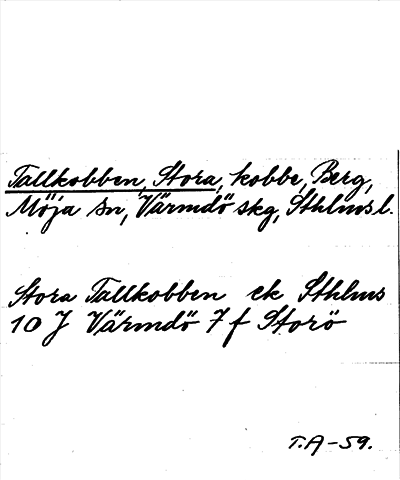 Tallkobben, Stora, kobbe, Berg,
Möja sn, Värmdö skg, Sthlms l.
Stora Tallkobben ek Sthlms
10 J Värmdö 7 f Storö
T.A -59.